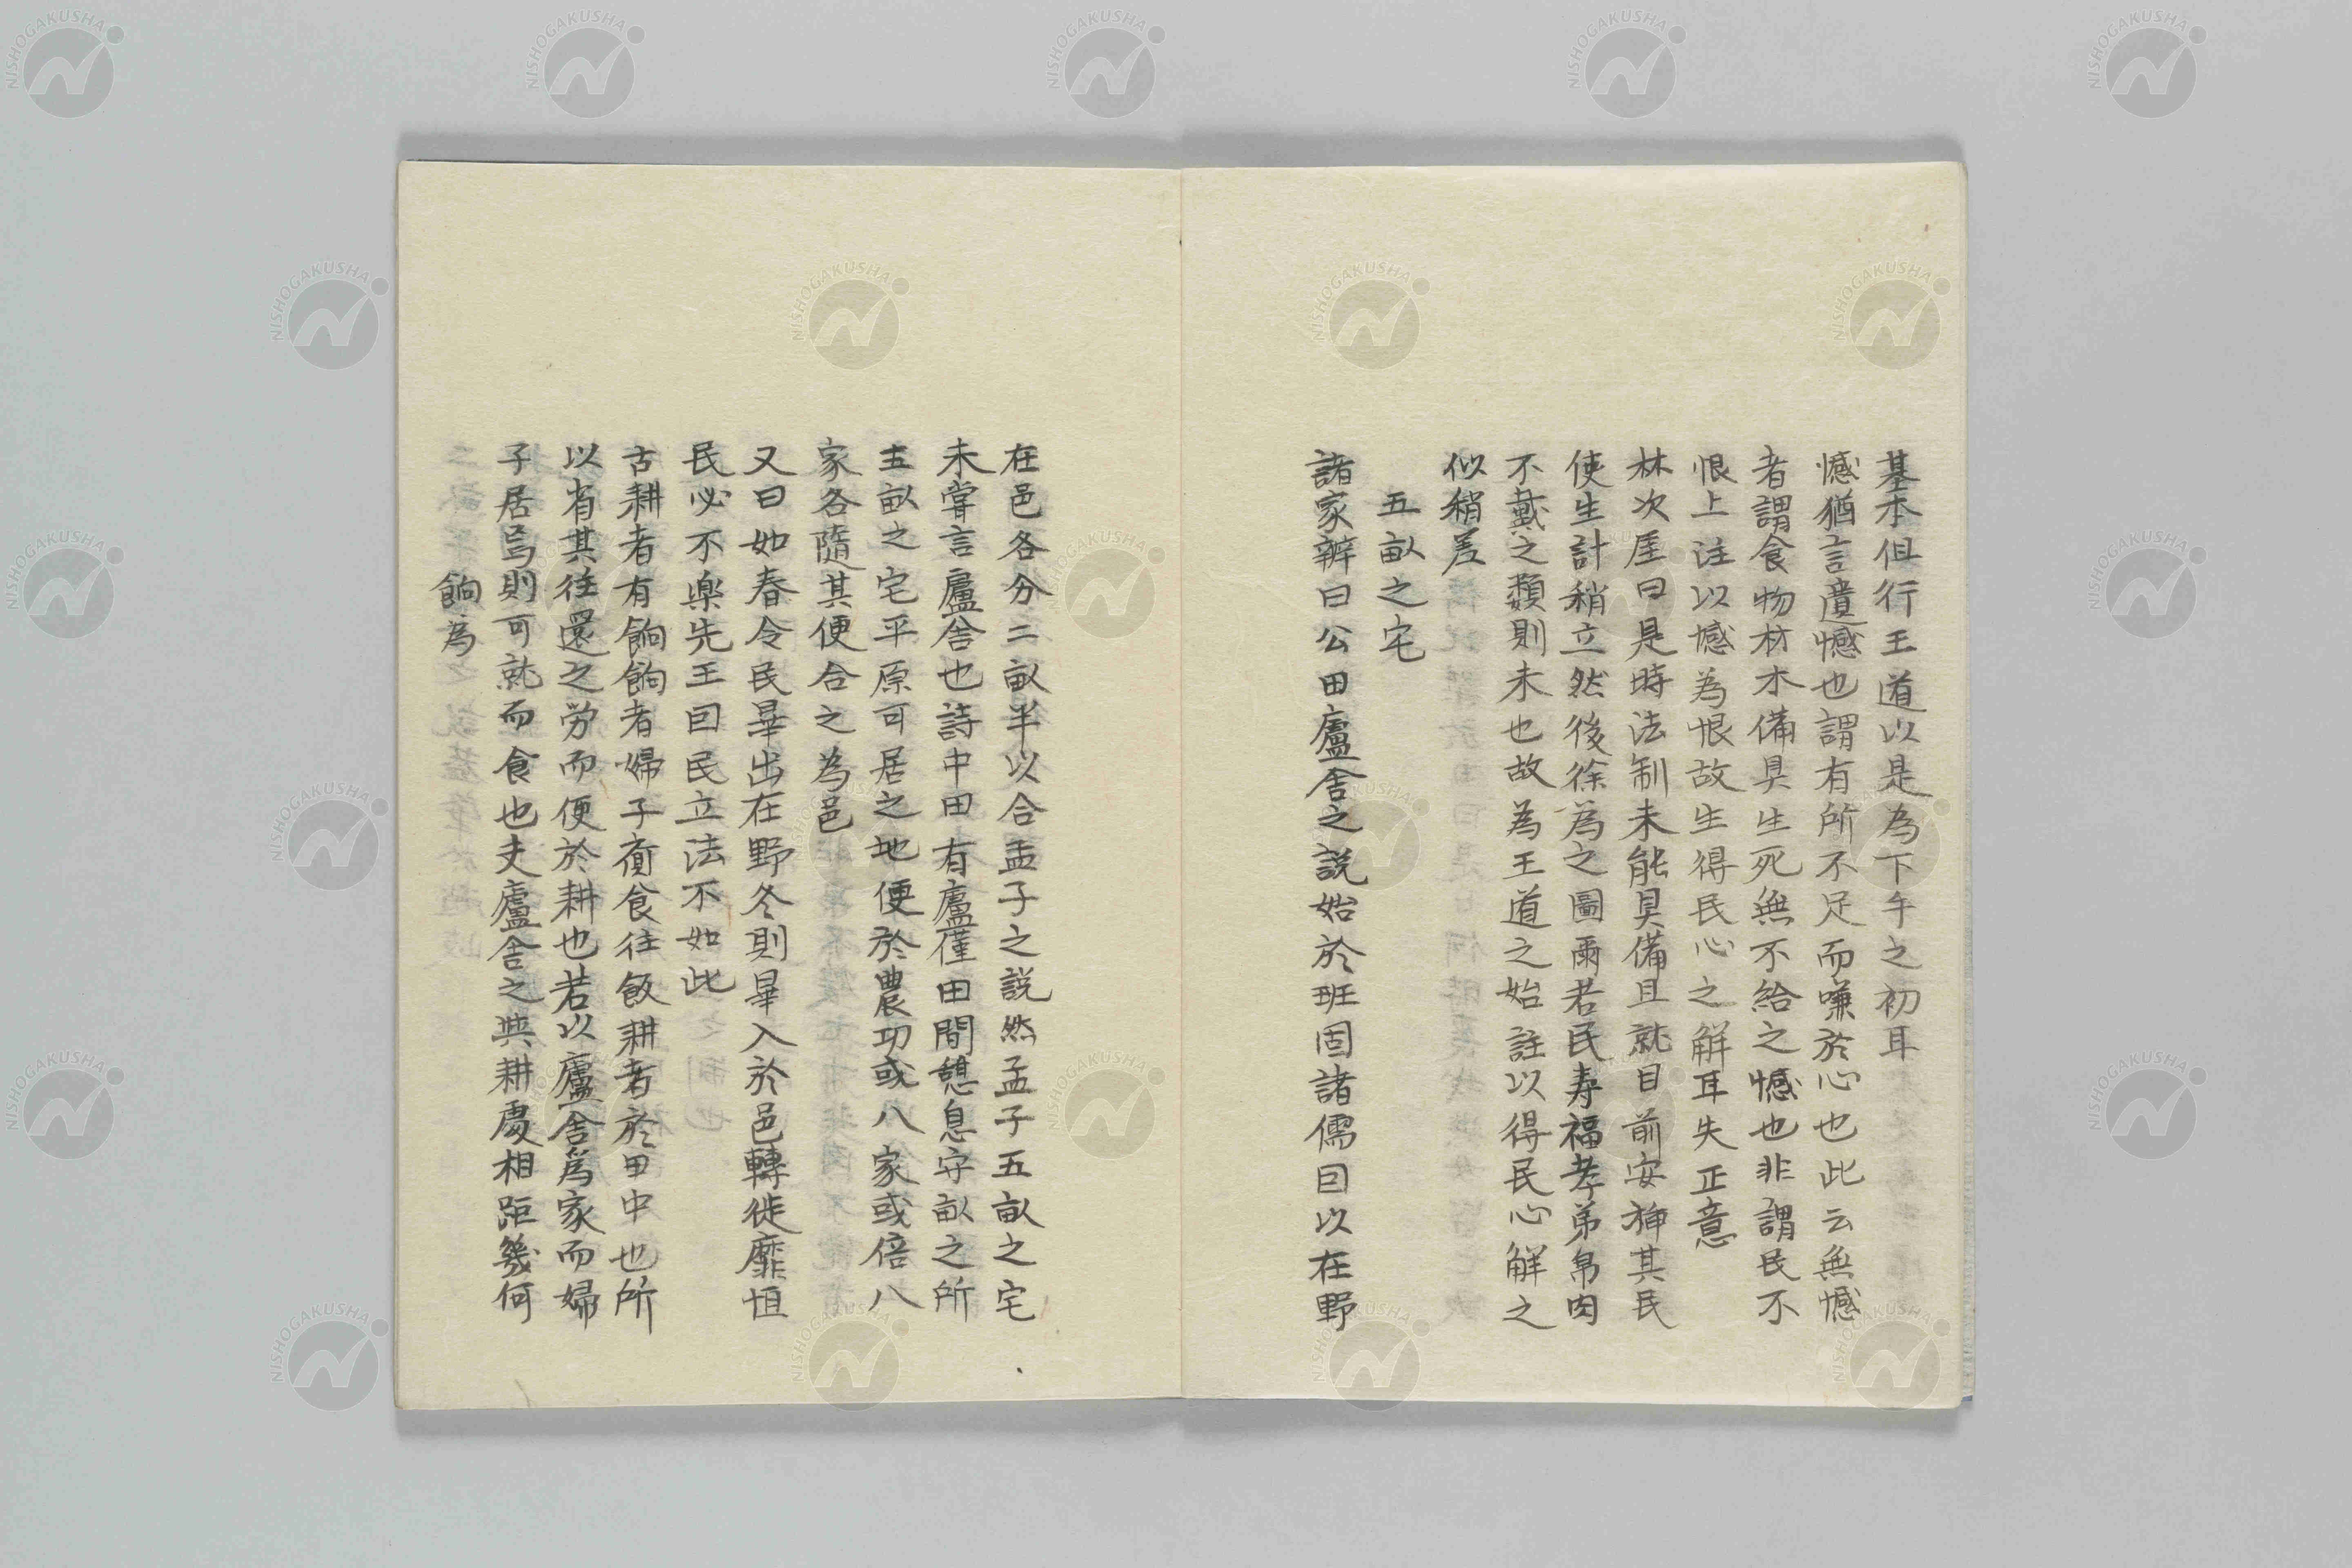 基本但行王道以是為下手之初耳
憾猶言遺憾也謂有所不足而嗛於心也此云無憾
者謂食物材木備具生死無不給之憾也非謂民不
恨上注以憾為恨故生得民心之解耳失正意
林次厓曰是時法制未能具備且就目前安挿其民
使生計稍立然後徐為之圖爾若民寿福孝弟帛肉
不戴之類則未也故為王道之始註以得民心解之
似稍差
五畝之宅
諸家辨曰公田廬舎之説始於班固諸儒因以在野
在邑各分二畝半以合孟子之説然孟子五畝之宅
未嘗言廬舎也詩中田有廬僅田間憩息守畝之所
五畝之宅平原可居之地便於農功或八家或倍八
家各隨其便合之為邑
又曰如春令民畢出在野冬則畢入於邑轉徙靡恒
民必不楽先王因民立法不如此
古耕者有餉餉者婦子賷食往飯耕者於田中也所
以省其往還之労而便於耕也若以廬舎為家而婦
子居焉則可就而食也夫廬舎之與耕處相距幾何
餉為
NISHOGAKUSHA